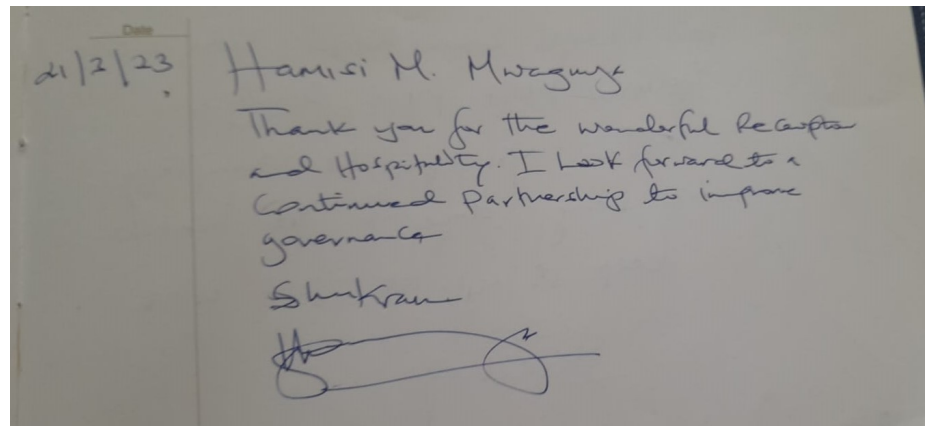 Date
21/2/23
Hamisi M. Mwaguya
Thank you for the wonderful Reception
and Hospitality. I Look forward to a
Continued Partnership to improve
governance
Shukran